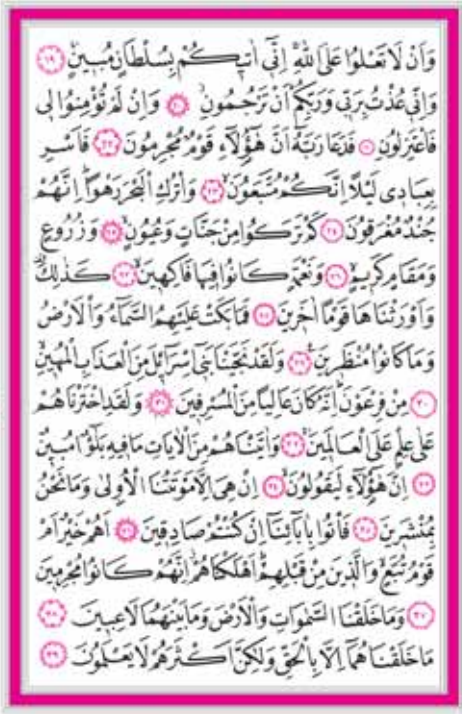 وَاَنْ لَا تَعْلُوا عَلَى اللّٰهِ اِنّٖٓي اٰتٖيكُمْ بِسُلْطَانٍ مُبٖينٍ ﴿١٩﴾
وَاِنّٖي عُذْتُ بِرَبّٖي وَرَبِّكُمْ اَنْ تَرْجُمُونِ ﴿٢٠﴾ وَاِنْ لَمْ تُؤْمِنُوا لٖي
فَاعْتَزِلُونِ ﴿٢١﴾ فَدَعَا رَبَّهُٓ اَنَّ هٰٓؤُ۬لَٓاءِ قَوْمٌ مُجْرِمُونَ ﴿٢٢﴾ فَاَسْرِ
بِعِبَادٖي لَيْلًا اِنَّكُمْ مُتَّبَعُونَ ﴿٢٣﴾ وَاتْرُكِ الْبَحْرَ رَهْوًا اِنَّهُمْ
جُنْدٌ مُغْرَقُونَ ﴿٢٤﴾ كَمْ تَرَكُوا مِنْ جَنَّاتٍ وَعُيُونٍ ﴿٢٥﴾ وَزُرُوعٍ
وَمَقَامٍ كَرٖيمٍ ﴿٢٦﴾ وَنَعْمَةٍ كَانُوا فٖيهَا فَاكِهٖينَ ﴿٢٧﴾ كَذٰلِكَ
وَاَوْرَثْنَاهَا قَوْمًا اٰخَرٖينَ ﴿٢٨﴾ فَمَا بَكَتْ عَلَيْهِمُ السَّمَٓاءُ وَالْاَرْضُ
وَمَا كَانُوا مُنْظَرٖينَ ﴿٢٩﴾ وَلَقَدْ نَجَّيْنَا بَنٖٓي اِسْرَٓائٖلَ مِنَ الْعَذَابِ الْمُهٖينِ
﴿٣٠﴾ مِنْ فِرْعَوْنَ اِنَّهُ كَانَ عَالِيًا مِنَ الْمُسْرِفٖينَ ﴿٣١﴾ وَلَقَدِ اخْتَرْنَاهُمْ
عَلٰى عِلْمٍ عَلَى الْعَالَمٖينَ ﴿٣٢﴾ وَاٰتَيْنَاهُمْ مِنَ الْاٰيَاتِ مَا فٖيهِ بَلٰٓؤٌا مُبٖينٌ
﴿٣٣﴾ اِنَّ هٰٓؤُ۬لَٓاءِ لَيَقُولُونَ ﴿٣٤﴾ اِنْ هِيَ اِلَّا مَوْتَتُنَا الْاُو۫لٰى وَمَا نَحْنُ
بِمُنْشَرٖينَ ﴿٣٥﴾ فَأْتُوا بِاٰبَٓائِنَٓا اِنْ كُنْتُمْ صَادِقٖينَ ﴿٣٦﴾ اَهُمْ خَيْرٌ اَمْ
قَوْمُ تُبَّعٍ وَالَّذٖينَ مِنْ قَبْلِهِمْ اَهْلَكْنَاهُمْ اِنَّهُمْ كَانُوا مُجْرِمٖينَ
﴿٣٧﴾ وَمَا خَلَقْنَا السَّمٰوَاتِ وَالْاَرْضَ وَمَا بَيْنَهُمَا لَاعِبٖينَ ﴿٣٨﴾
مَا خَلَقْنَاهُمَٓا اِلَّا بِالْحَقِّ وَلٰكِنَّ اَكْثَرَهُمْ لَا يَعْلَمُونَ ﴿٣٩﴾